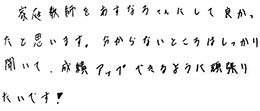 家庭教師をあすなろさんにして良かっ
たと思います。分からないところはしっかり
聞いて、成績アップできるように頑張り
たいです!